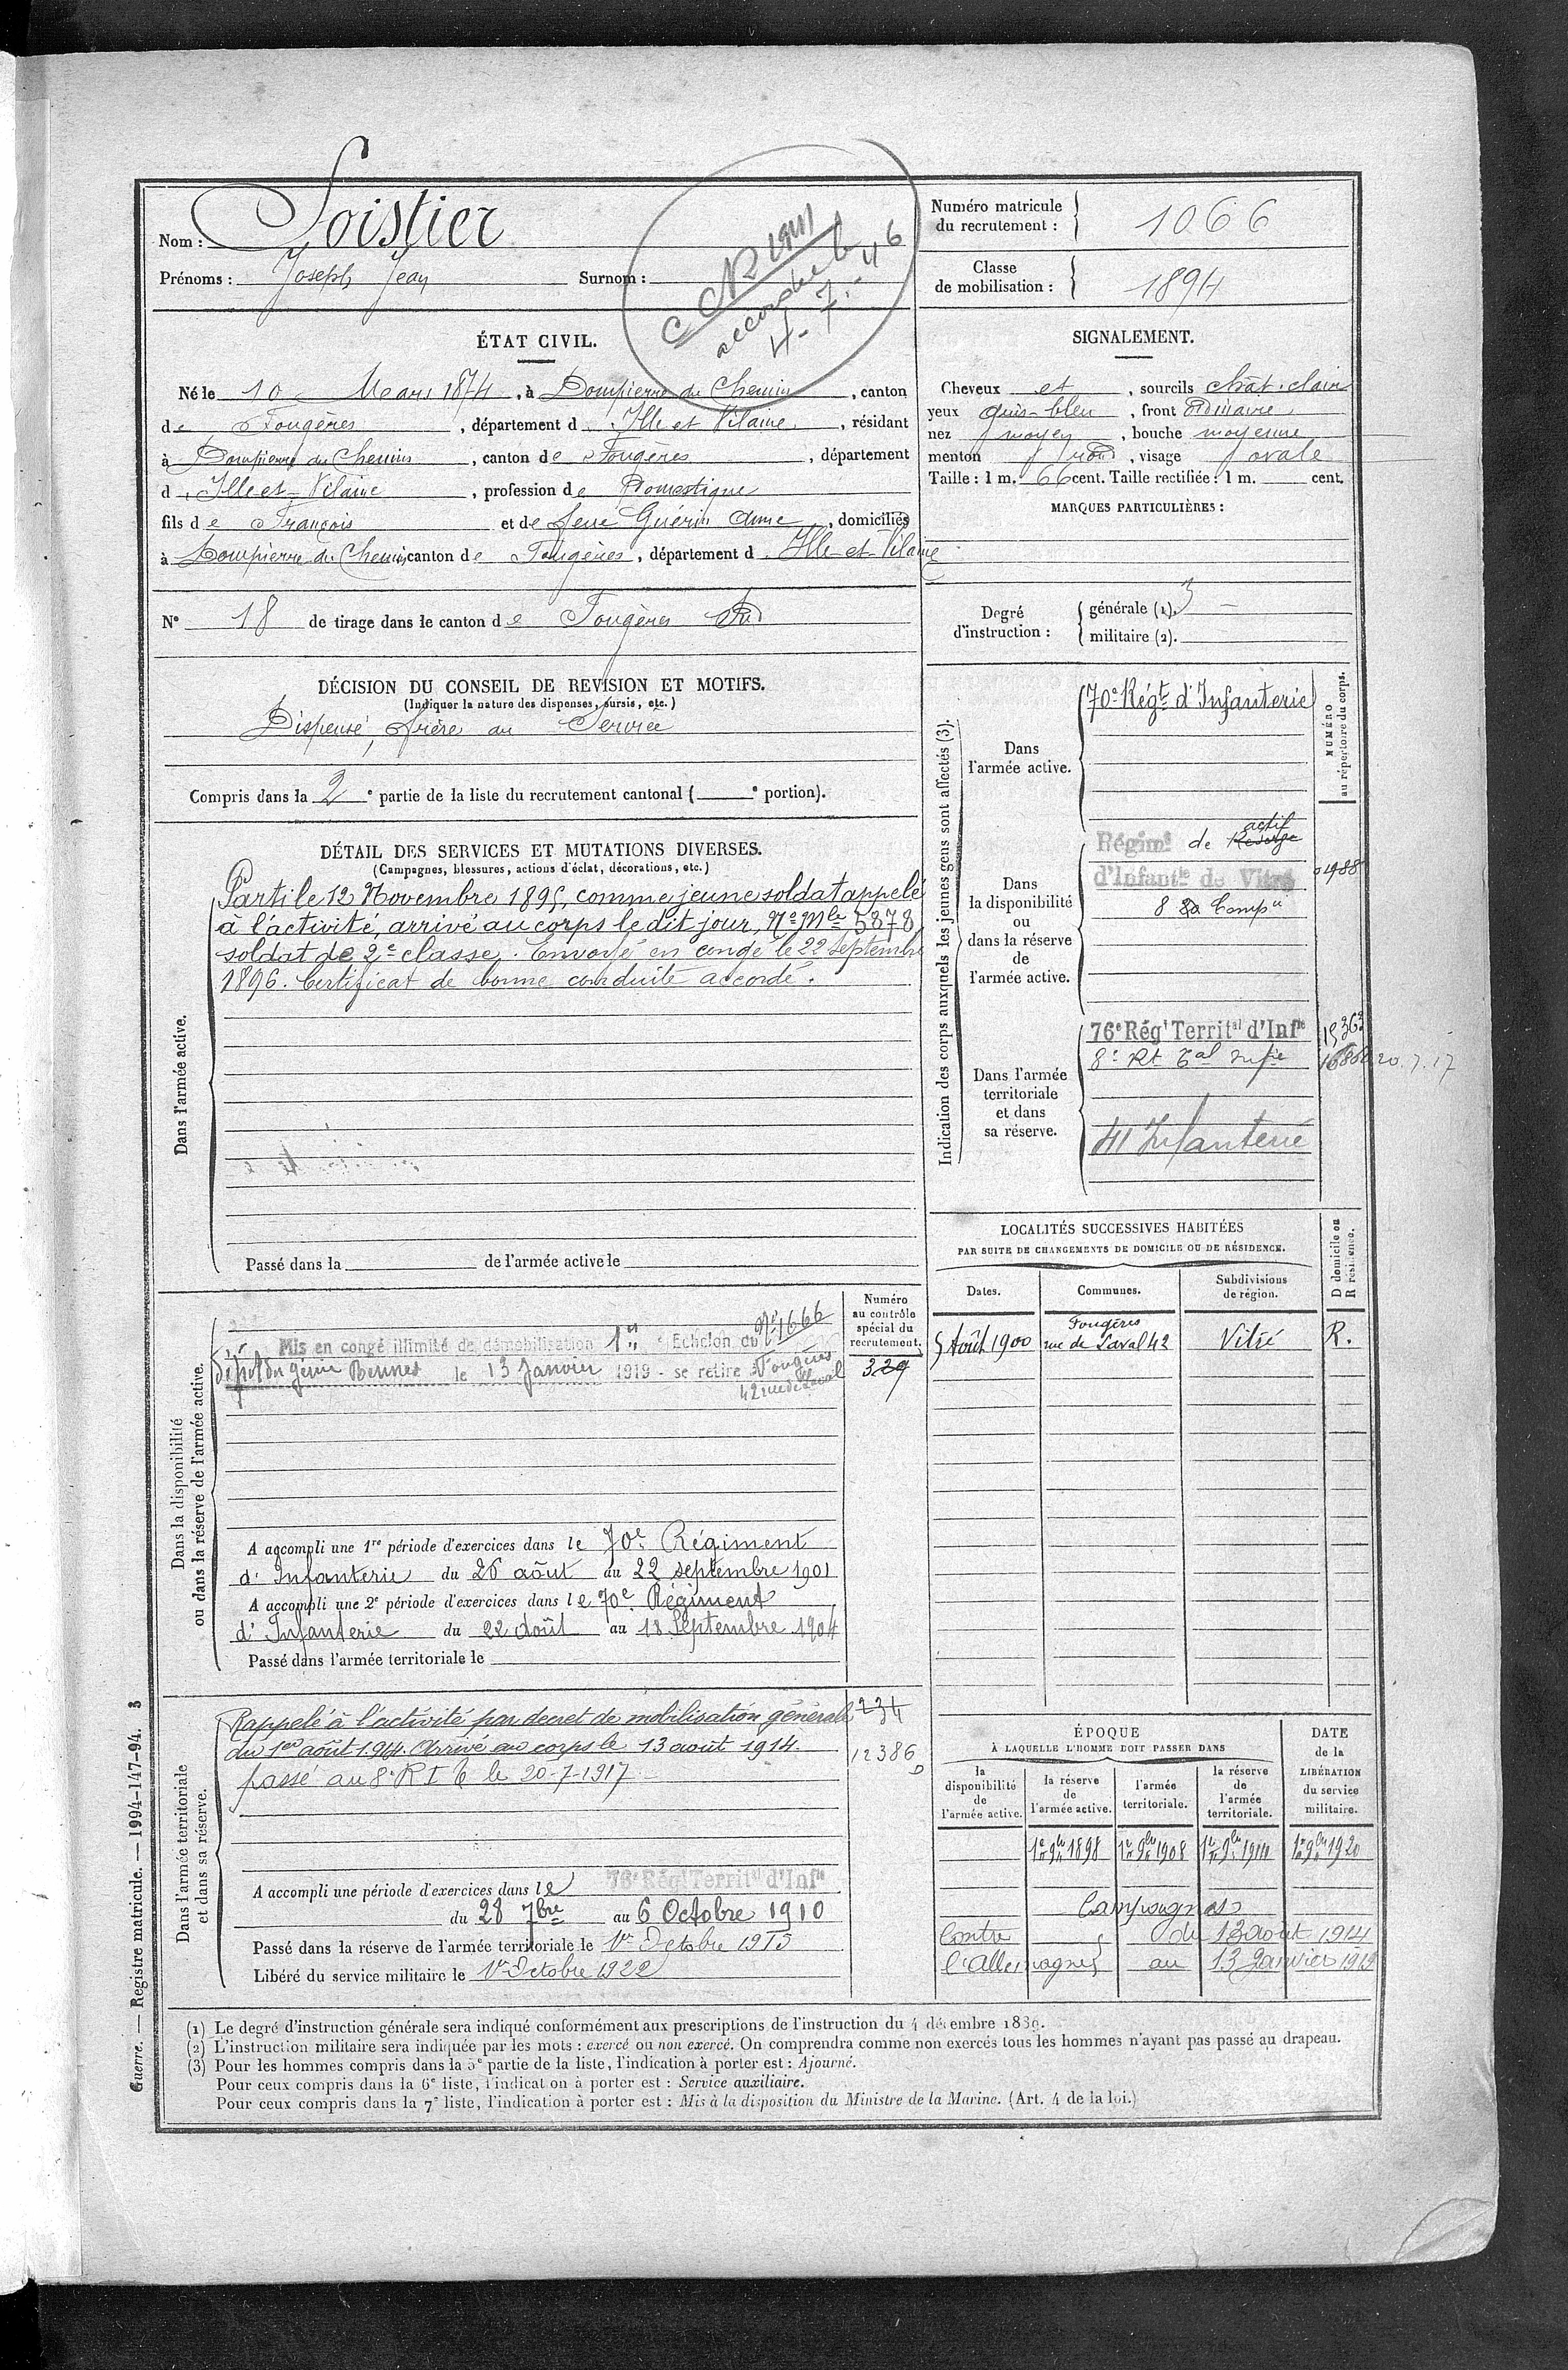 Nom : Loistier
Prénoms : Joseph Jean Surnom :
CNR 1941
accordée le
4-7-46
Numéro matricule
du recrutement : 1066
Classe
de mobilisation : 1894
ÉTAT CIVIL.
Né le 10 Mars 1874, à Dompierre du Chemin, canton
de Fougères, département d'Ille et Vilaine, résidant
à Dompierre du Chemin, canton de Fougères, département
d'Ille et Vilaine, profession de Domestique
fils de François et de feue Guérin Anne, domiciliés
à Dompierre du Chemin canton de Fougères, département d'Ille et Vilaine
N° 18 de tirage dans le canton de Fougères Sud
SIGNALEMENT.
Cheveux et, sourcils chât. clair
yeux gris-bleu, front Ordinaire
nez moyen, bouche moyenne
menton rond, visage ovale
Taille : 1 m. 66 cent. Taille rectifiée : 1 m. cent.
MARQUES PARTICULIÈRES :
Degré
d'instruction :
générale (1). 3
militaire (2).
DÉCISION DU CONSEIL DE REVISION ET MOTIFS.
(Indiquer la nature des dispenses, sursis, etc.)
Dispensé, frère au Service
Compris dans la 2e partie de la liste du recrutement cantonal ( e portion).
DÉTAIL DES SERVICES ET MUTATIONS DIVERSES.
(Campagnes, blessures, actions d'éclat, décorations, etc.)
Dans l'armée active.
Parti le 12 Novembre 1895, comme jeune soldat appelé
à l'activité, arrivé au corps le dit jour, N° Mle 5878
soldat de 2e classe. Envoyé en congé le 22 Septembre
1896. Certificat de bonne conduite accordé.
Passé dans la de l'armée active le
Indication des corps auxquels les jeunes gens sont affectés (3).
NUMÉRO
au répertoire du corps.
Dans
l'armée active.
70e Régt d'Infanterie
Dans
la disponibilité
ou
dans la réserve
de
l'armée active.
actif
Régimt de Réserve
d'Infantie de Vitré
01988
8 Compie
Dans l'armée
territoriale
et dans
sa réserve.
76e Régt Territal d'Infie
15363
8e Rt Tal Infie
20.7.17
41 Infanterie
LOCALITÉS SUCCESSIVES HABITÉES
PAR SUITE DE CHANGEMENTS DE DOMICILE OU DE RÉSIDENCE.
Dates. Communes. Subdivisions
de région. D domicile ou
R résidence.
5 Août 1900 Fougères
rue de Laval 42 Vitré R.
Dans la disponibilité
ou dans la réserve de l'armée active.
Numéro
au contrôle
spécial du
recrutement.
329
Mis en congé illimité de démobilisation 1er Echelon du N° 1666
dépôt du génie Rennes le 13 Janvier 1919 - se retire Fougères
42 rue de Laval
A accompli une 1re période d'exercices dans le 70e Régiment
d'Infanterie du 26 août au 22 septembre 1901
A accompli une 2e période d'exercices dans le 70e Régiment
d'Infanterie du 22 août au 18 Septembre 1904
Passé dans l'armée territoriale le
Dans l'armée territoriale
et dans sa réserve.
Rappelé à l'activité par décret de mobilisation générale 234
du 1er août 1914. Arrivé au corps le 13 août 1914. 12386
passé au 8e R I T le 20-7-1917
A accompli une période d'exercices dans le 76e Régt Territal d'Infie
du 28 7bre au 6 Octobre 1910
Passé dans la réserve de l'armée territoriale le 1er Octobre 1915
Libéré du service militaire le 1er Octobre 1922
ÉPOQUE
À LAQUELLE L'HOMME DOIT PASSER DANS
DATE
de la
LIBÉRATION
du service
militaire.
la
disponibilité
de
l'armée active.
la réserve
de
l'armée active.
l'armée
territoriale.
la réserve
de
l'armée
territoriale.
1er 9bre 1898 1er 9bre 1908 1er 9bre 1914 1er 9bre 1920
Campagnes
Contre du 13 août 1914
l'Allemagne au 13 Janvier 1919
(1) Le degré d'instruction générale sera indiqué conformément aux prescriptions de l'instruction du 4 décembre 1889.
(2) L'instruction militaire sera indiquée par les mots : exercé ou non exercé. On comprendra comme non exercés tous les hommes n'ayant pas passé au drapeau.
(3) Pour les hommes compris dans la 5e partie de la liste, l'indication à porter est : Ajourné.
Pour ceux compris dans la 6e liste, l'indication à porter est : Service auxiliaire.
Pour ceux compris dans la 7e liste, l'indication à porter est : Mis à la disposition du Ministre de la Marine. (Art. 4 de la loi.)
Guerre. — Registre matricule. — 1994-147-94. 3